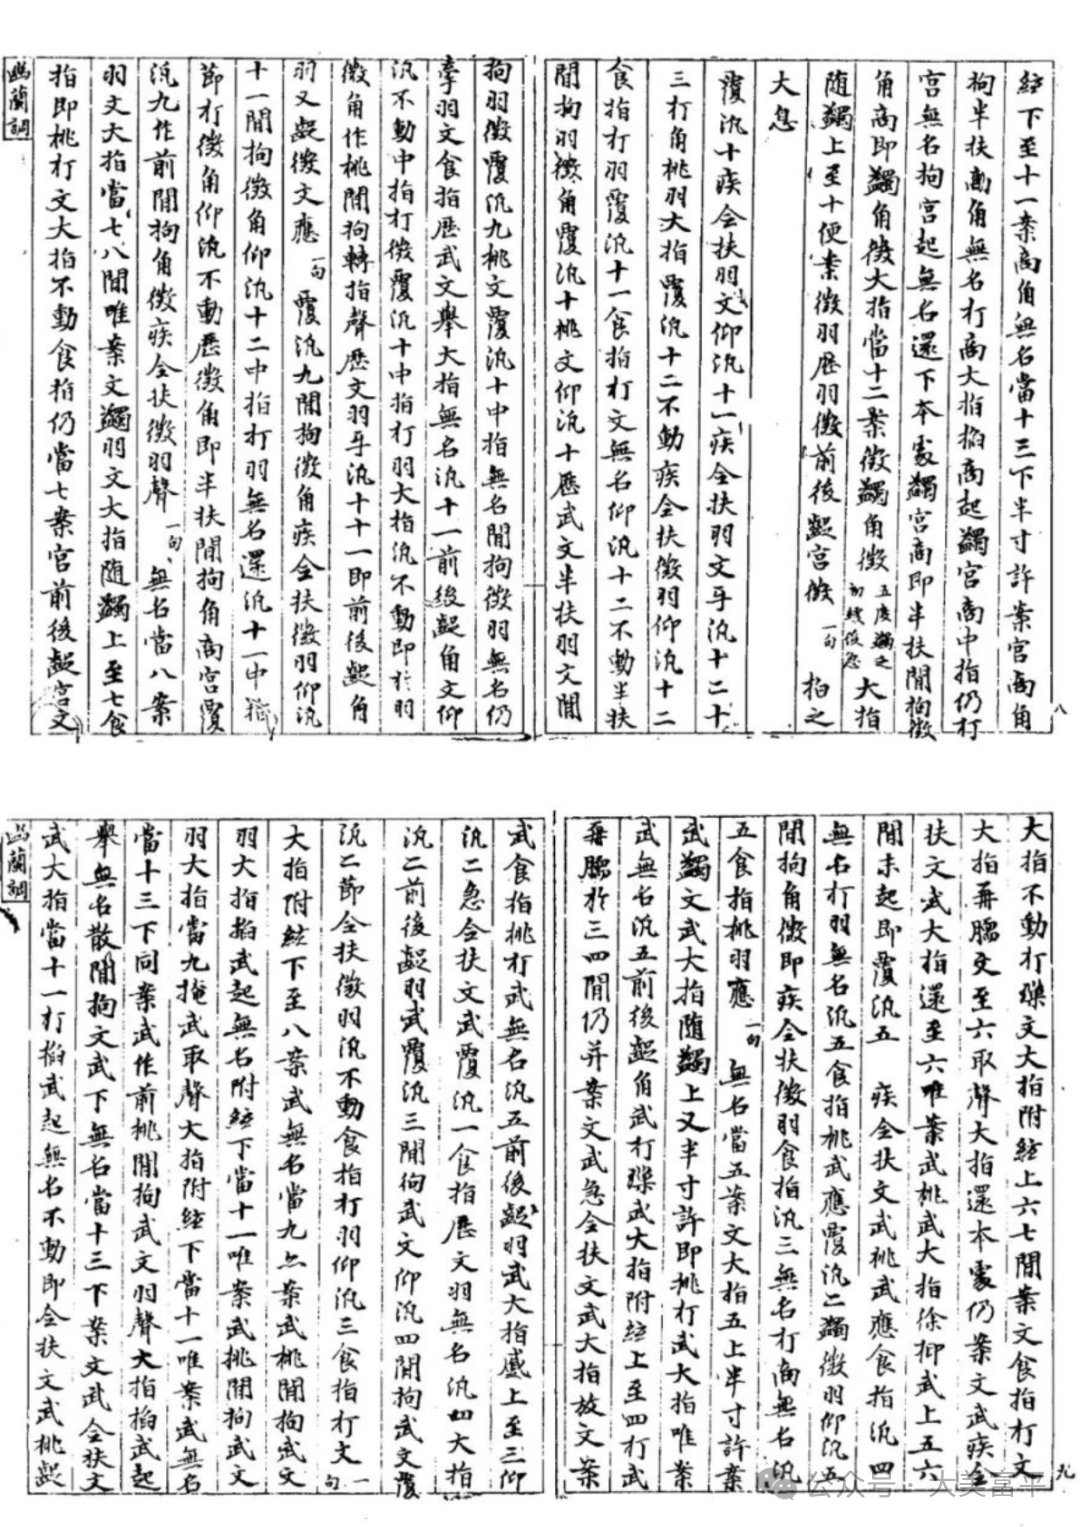 絃下至十一案商角無名當十三下半寸許案宮商角
拘半扶商角無名打商大指掐商起蠲宮商中指仍打
宮無名拘宮起無名還下本處蠲宮商即半扶間拘徵
角商即蠲角徵大指當十二案徵蠲角徵 大指
随蠲上至十便案徵羽歷羽徵前後龊宮徵 一句 拍之
大息
覆汎十疾全扶羽文仰汎十一疾全扶羽文乎汎十二十
三打角桃羽大指覆汎十二不動疾全扶徵羽仰汎十二
食指打羽覆汎十一食指打文無名仰汎十二不動半扶
間拘羽徵角覆汎十桃文仰汎十歷武文半扶羽文間
拘羽徵覆汎九桃文覆汎十中指無名間拘徵羽無名仍
牽羽文食指歷武文舉大指無名汎十一前後龊角文仰
汎不動中指打徵覆汎十中指打羽大指汎不動即於羽
徵角作桃間拘轉指聲歷文羽乎汎十十一即前後龊角
羽又龊徵文應 一句 覆汎九間拘徵角疾全扶徵羽仰汎
十一間拘徵角仰汎十二中指打羽無名還汎十一中
節打徵角仰汎不動歷徵角即半扶間拘角商宮覆
汎九作前間拘角徵疾全扶徵羽聲 一句 無名當八案
羽文大指當七八間唯案文蠲羽文大指随蠲上至七食
指即桃打文大指不動食指仍當七案宮前後龊宮文
幽蘭調
八
大指不動打擽文大指附絃上六七間案文食指打文
大指再臑文至六取聲大指還本處仍案文武疾全
扶文武大指還至六唯案武桃武大指徐抑武上五六
間未起即覆汎五 疾全扶文武桃武應食指汎四
無名打羽無名汎五食指桃武應覆汎二蠲徵羽仰汎五
間拘角徵即疾全扶徵羽食指汎三無名打商無名汎
五食指桃羽應 一句 無名當五案文大指五上半寸許案
武蠲文武大指随蠲上又半寸許即桃打武大指唯案
武無名汎五前後龊角武打擽武大指附絃上至四打武
再臑於三四間仍并案文武急全扶文武大指放文案
武食指桃打武無名汎五前後龊羽武大指蹙上至三仰
汎二急全扶文武覆汎一食指歷文羽無名汎四大指
汎二前後龊羽武覆汎三間拘武文仰汎四間拘武文覆
汎二節全扶徵羽汎不動食指打羽仰汎三食指打文 一句
大指附絃下至八案武無名當九亦案武桃間拘武文
羽大指掐武起無名附絃下當十一唯案武桃間拘武文
羽大指當九掩武取聲大指附絃下當十一唯案武無名
當十三下同案武作前桃間拘武文羽聲大指掐武起
舉無名散間拘文武下無名當十三下案文武全扶文
武大指當十一打掐武起無名不動即全扶文武桃龊
幽蘭調
九
公众号·大美富平